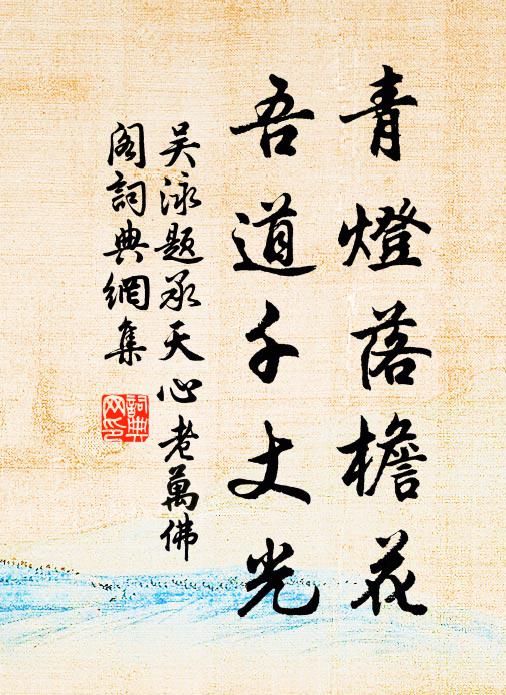 青燈落檐花
吾道千丈光
吴泳題承天心老萬佛
閣詞典網集
詞典
网印